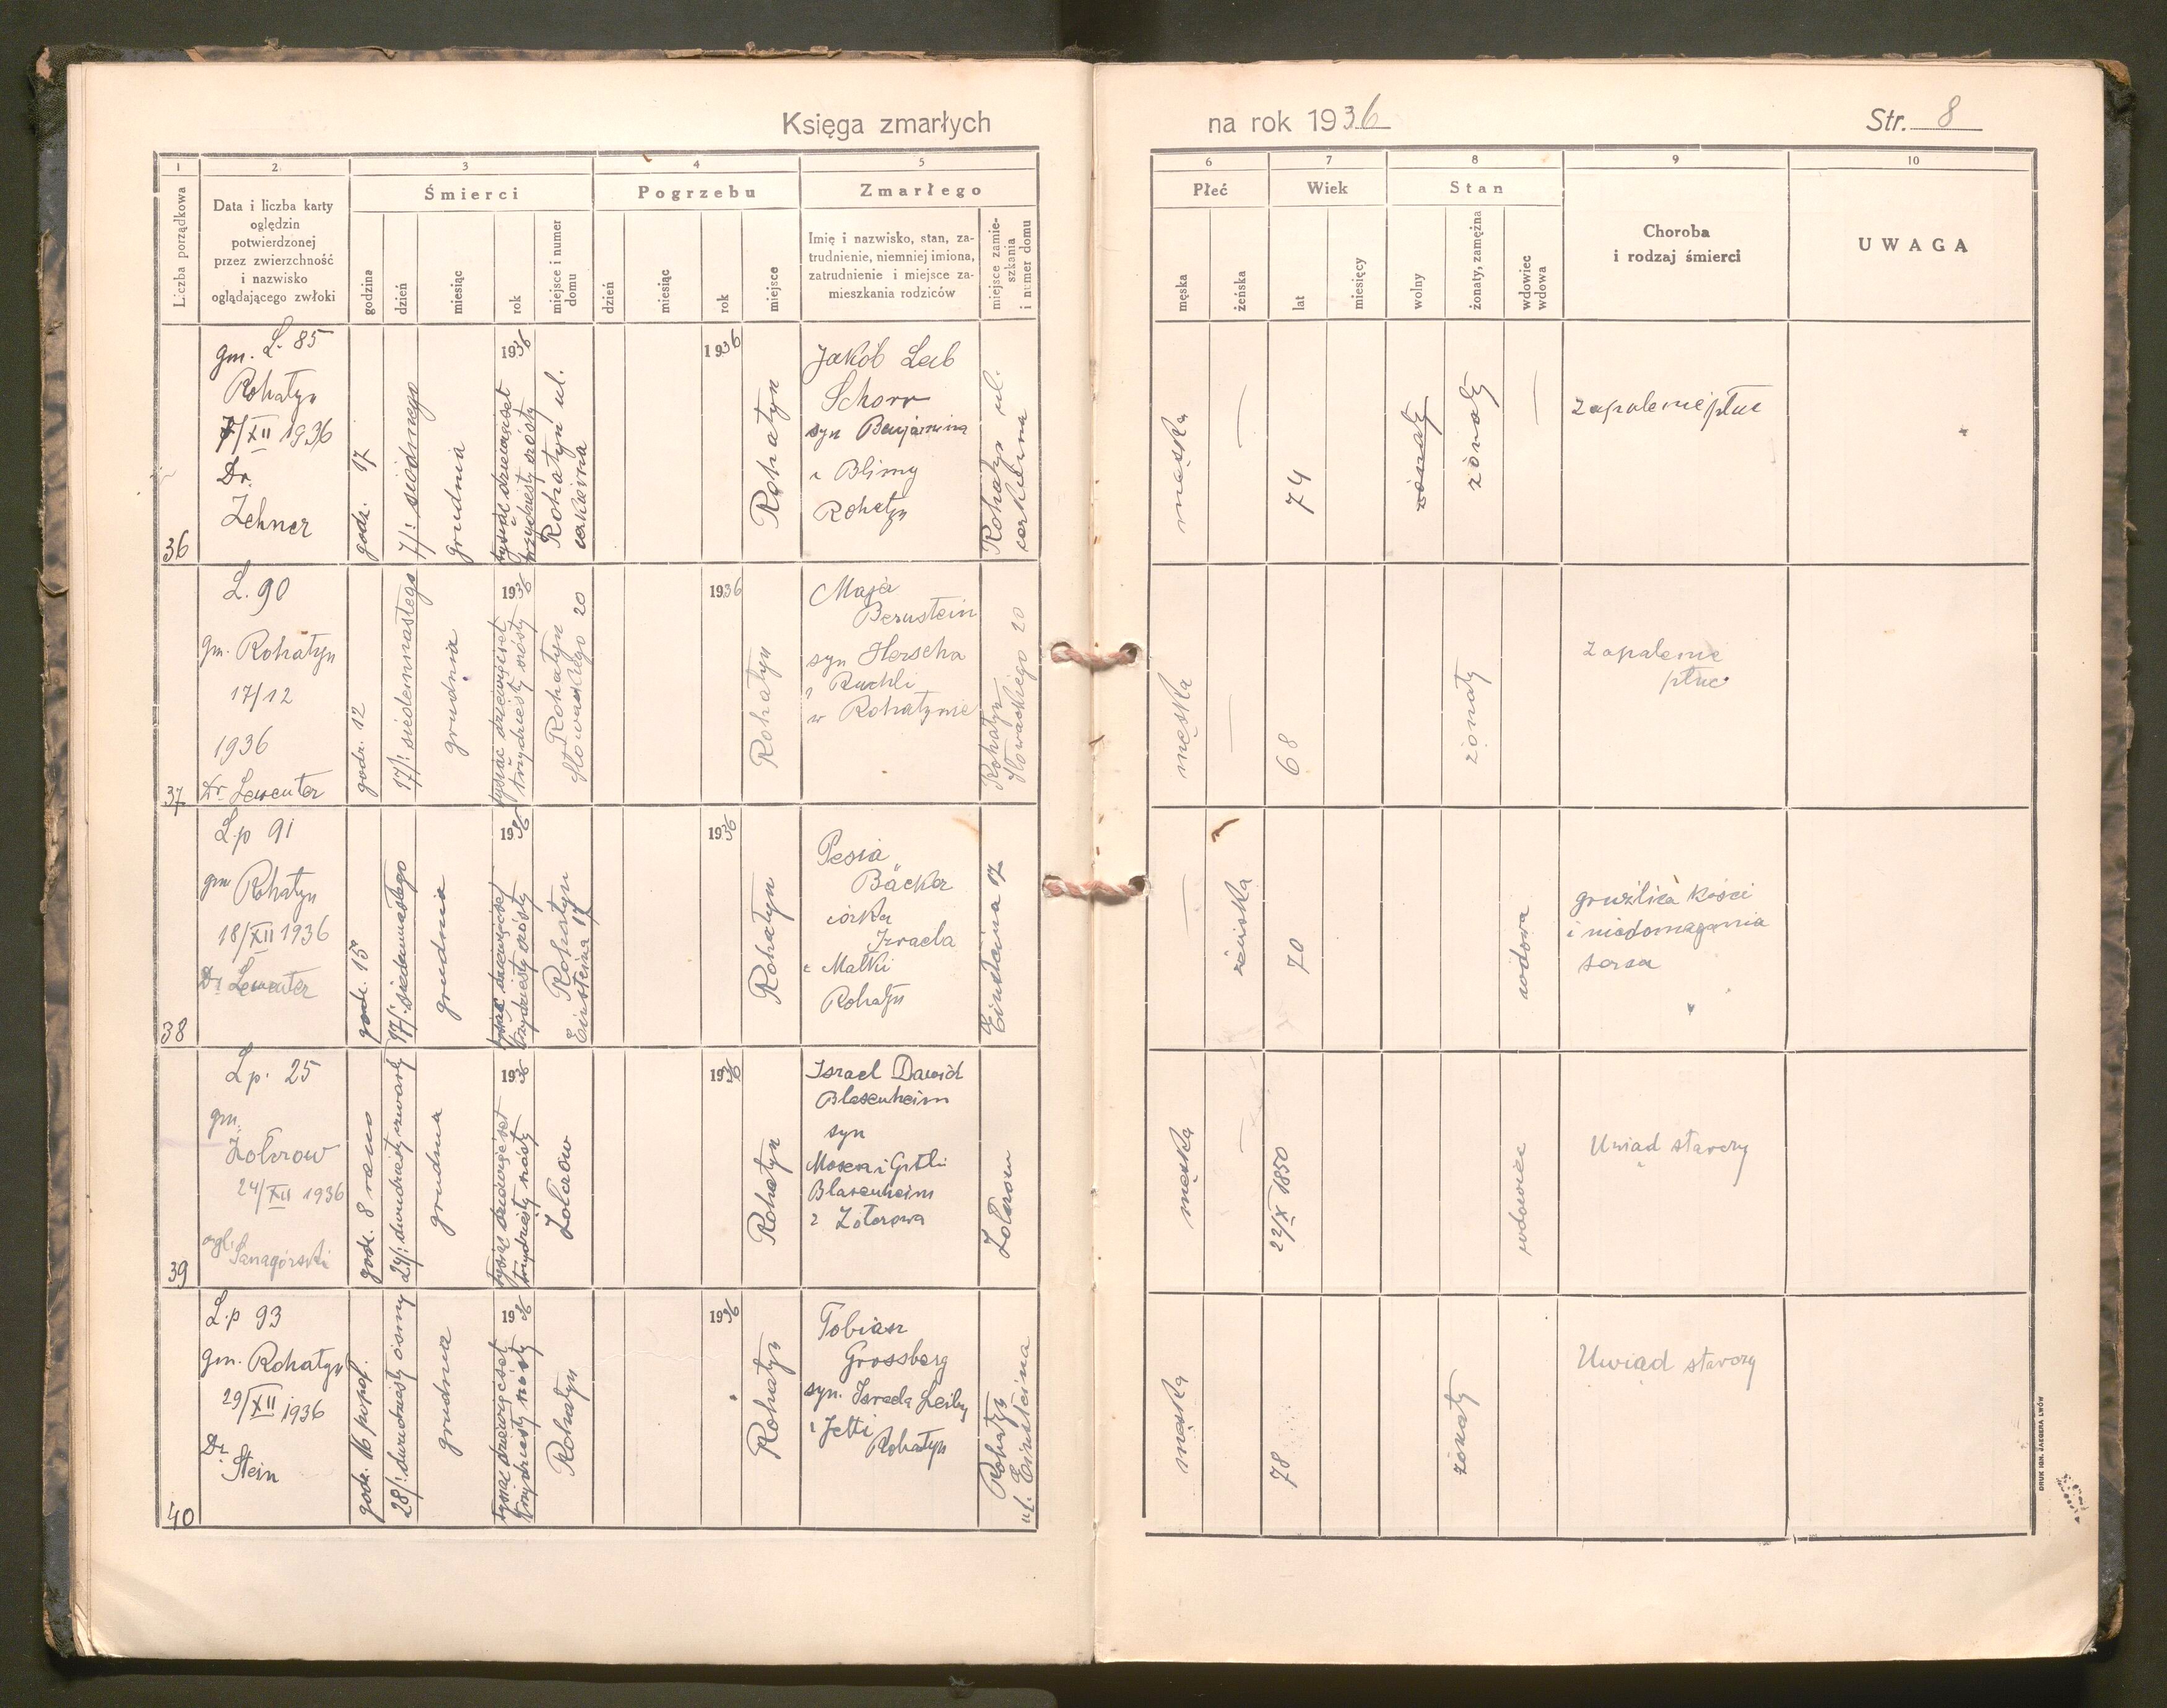 Księga zmarłych na rok 1936 Str. 8
1 2. 3 4 5 6 7 8 9 10
Liczba porządkowa
Data i liczba karty
oględzin
potwierdzonej
przez zwierzchność
i nazwisko
oglądającego zwłoki
Śmierci
godzina
dzień
miesiąc
rok
miejsce i numer
domu
Pogrzebu
dzień
miesiąc
rok
miejsce
Zmarłego
Imię i nazwisko, stan, za-
trudnienie, niemniej imiona,
zatrudnienie i miejsce za-
mieszkania rodziców
miejsce zamie-
szkania
i numer domu
Płeć
męska
żeńska
Wiek
lat
miesięcy
Stan
wolny
żonaty, zamężna
wdowiec
wdowa
Choroba
i rodzaj śmierci
UWAGA
36
gm. L. 85
Rohatyn
7/XII 1936
Dr.
Zehner
godz. 17
7/: siódmego
grudnia
1936
tysiąc dziewięćset
trzydziesty szósty
Rohatyn ul.
cerkiewna
1936
Rohatyn
Jakób Leib
Schorr
syn Benjamina
i Blimy
Rohatyn
Rohatyn ul.
cerkiewna
męska
—
74
żonaty
żonaty
—
zapalenie płuc
37
L. 90
gm. Rohatyn
17/12
1936
Dr. Lewenter
godz. 12
17/: siedemnastego
grudnia
1936
tysiąc dziewięćset
trzydziesty szósty
Rohatyn
Słowackiego 20
1936
Rohatyn
Maja
Bernstein
syn Herscha
i Ruchli
w Rohatynie
Rohatyn
Słowackiego 20
męska
—
68
żonaty
zapalenie
płuc
38
L.p 91
gm Rohatyn
18/XII 1936
Dr Lewenter
godz. 15
17/: siedemnastego
grudnia
1936
tysiąc dziewięćset
trzydziesty szósty
Rohatyn
Einsteina 17
1936
Rohatyn
Pesia
Bäcker
córka
Izraela
i Malki
Rohatyn
Einsteina 17
—
żeńska
70
wdowa
gruźlica kości
i niedomagania
serca
39
Lp. 25
gm.
Żołczow
24/XII 1936
ogl.
godz. 8 rano
24/: dwudziesty czwarty
grudnia
1936
tysiąc dziewięćset
trzydziesty szósty
Żołczów
1936
Rohatyn
Israel Dawid
Blasenheim
syn
Mosesa i Gitli
Blasenheim
z Żołczowa
Żołczow
męska
—
22/X 1850
wdowiec
Uwiąd starczy
40
L.p 93
gm. Rohatyn
29/XII 1936
Dr.
Stein
godz. 16 popoł.
28/: dwudziesty ósmy
grudnia
1936
tysiąc dziewięćset
trzydziesty szósty
Rohatyn
1936
Rohatyn
Tobiasz
Grossberg
syn. Israela Leiby
i Jetti
Rohatyn
Rohatyn
ul. Einsteina
męska
78
żonaty
Uwiąd starczy
DRUK IGN. JAEGERA LWÓW